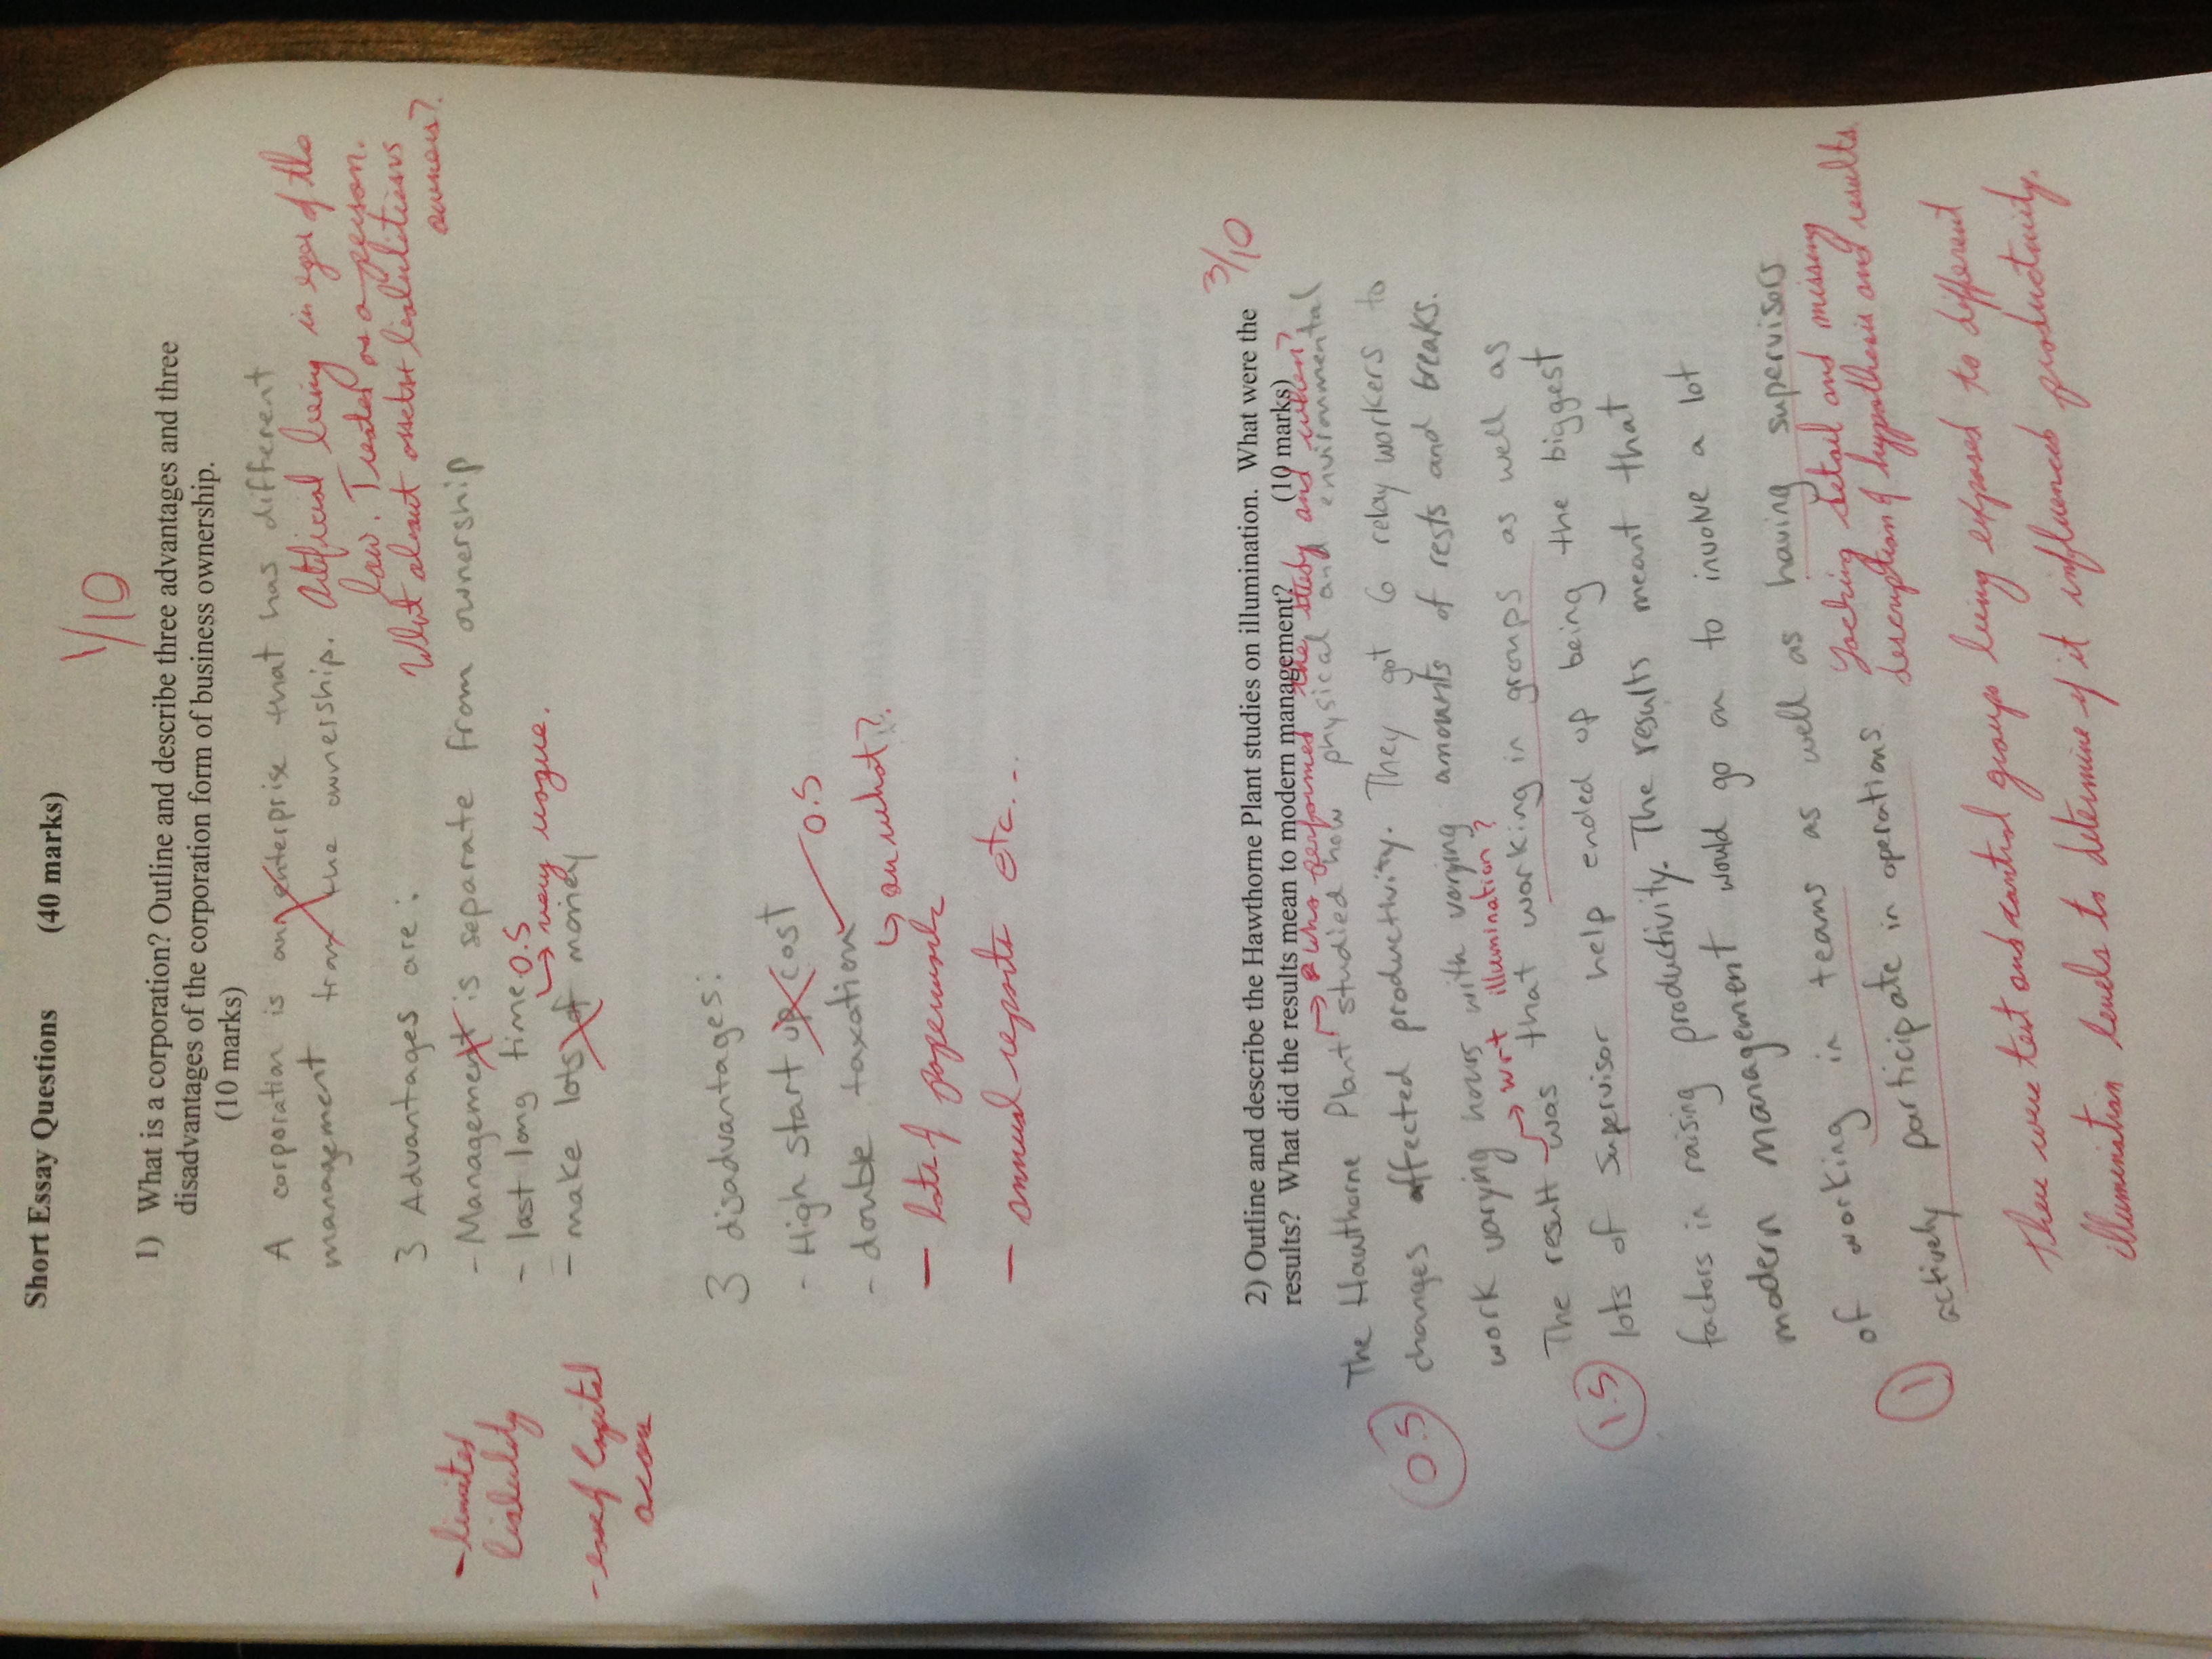 Short Essay Questions (40 marks)
1/10
1) What is a corporation? Outline and describe three advantages and three
disadvantages of the corporation form of business ownership.
(10 marks)
A corporation is an enterprise that has different
management than the ownership. Artificial being in eyes of the
law. Treated as a person.
What about assets liabilities
owners?
3 Advantages are:
- Management is separate from ownership
- last long time 0.5
↳ very vague.
- make lots of money
- limited
liability
- ease of capital
access
3 disadvantages:
- High start up cost
- double taxation 0.5
↳ on what?
- lots of paperwork
- annual reports etc...
3/10
2) Outline and describe the Hawthorne Plant studies on illumination. What were the
results? What did the results mean to modern management? (10 marks)
who performed the study and when?
The Hawthorne Plant studied how physical and environmental
changes affected productivity. They got 6 relay workers to
0.5
work varying hours with varying amounts of rests and breaks.
→ wrt illumination?
The result was that working in groups as well as
lots of supervisor help ended up being the biggest
1.5
factors in raising productivity. The results meant that
modern management would go on to involve a lot
of working in teams as well as having supervisors
1
actively participate in operations.
Lacking detail and missing
description of hypothesis and results.
There were test and control groups being exposed to different
illumination levels to determine if it influenced productivity.